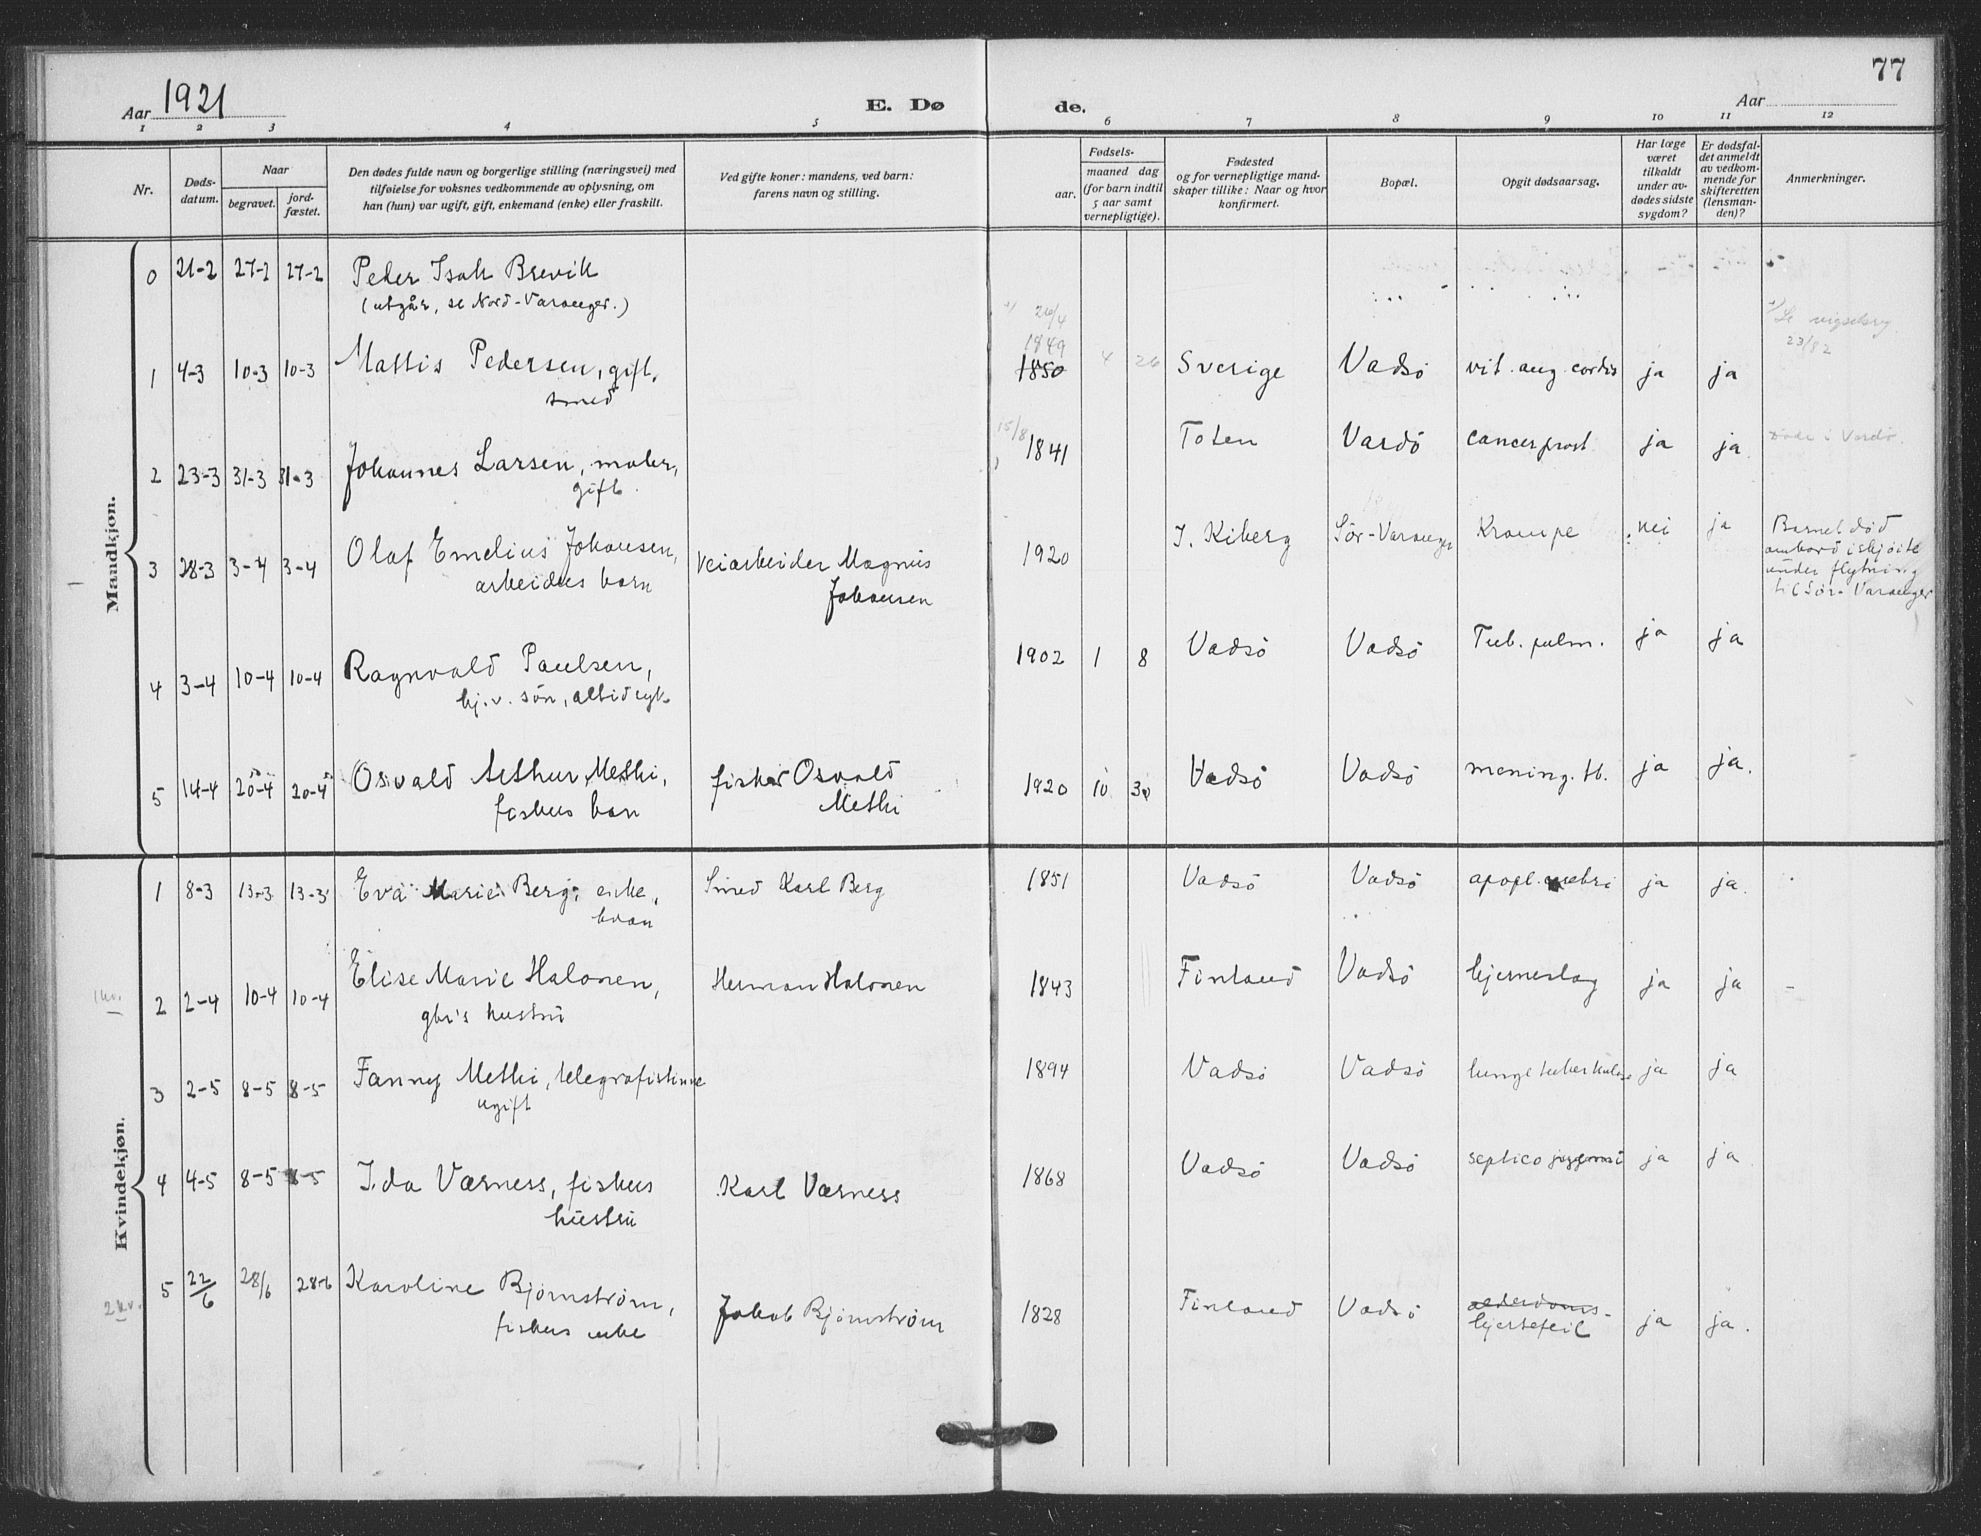 77
Aar 1921
E. Dø de.
Aar
1 2 3 4 5 6 7 8 9 10 11 12
Nr.
Døds-
datum.
Naar
begravet.
jord-
fæstet.
Den dødes fulde navn og borgerlige stilling (næringsvei) med
tilføielse for voksnes vedkommende av oplysning, om
han (hun) var ugift, gift, enkemand (enke) eller fraskilt.
Ved gifte koner: mandens, ved barn:
farens navn og stilling.
Fødsels-
aar.
maaned dag
(for barn indtil
5 aar samt
vernepligtige).
Fødested
og for vernepligtige mand-
skaper tillike: Naar og hvor
konfirmert.
Bopæl.
Opgit dødsaarsag.
Har læge
været
tilkaldt
under av-
dødes sidste
sygdom?
Er dødsfal-
det anmeldt
av vedkom-
mende for
skifteretten
(lensman-
den)?
Anmerkninger.
Mandkjøn.
0 21-2 27-2 27-2 Peder Isak Brevik
(utgår, se Nord-Varanger.)
26/4
1849
23/82
1 4-3 10-3 10-3 Mattis Pedersen, gift, 1850 4 26 Sverige Vadsö vit. aug. cordis ja ja
smed
15/8
2 23-3 31-3 31-3 Johannes Larsen, maler, 1841 Toten Vardö cancer prost ja ja Döde i Vardö.
gift.
3 28-3 3-4 3-4 Olaf Emelius Johansen, Veiarbeider Magnus 1920 I. Kiberg Sör-Varanger Krampe nei ja Barnet död
arbeiders barn Johansen ombord i skjöite
under flytning
til Sör-Varanger
4 3-4 10-4 10-4 Ragnvald Paulsen, 1902 1 8 Vadsö Vadsö Tub. pulm. ja ja
hj. v. sön, altid syk
5 14-4 20-4 20-4 Osvald Arthur Methi, fisker Osvald 1920 10 30 Vadsö Vadsö mening. tb. ja ja.
fiskers barn Methi
Kvindekjøn.
1 8-3 13-3 13-3 Eva Marie Berg, enke, Smed Karl Berg 1851 Vadsö Vadsö apopl. cerebri ja ja.
kvæn
1 kv.
2 2-4 10-4 10-4 Elise Marie Halonen, Herman Halonen 1843 Finland Vadsö hjerneslag ja ja -
gbr's hustru
3 2-5 8-5 8-5 Fanny Methi, telegrafistinne 1894 Vadsö Vadsö lungetuberkulose ja ja
ugift
4 4-5 8-5 8-5 Ida Værness, fiskers Karl Værness 1868 Vadsö Vadsö septico ja ja
hustru
2 kv.
5 22/6 28/6 28-6 Karoline Bjørnstrøm, Jakob Bjørnstrøm 1828 Finland Vadsö alderdoms-
fiskers enke hjertefeil ja ja.